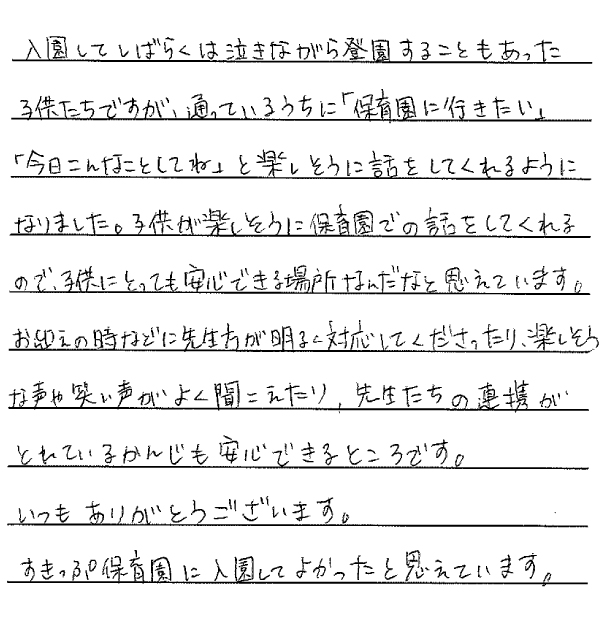 入園してしばらくは泣きながら登園することもあった
子供たちですが、通っているうちに「保育園に行きたい」
「今日こんなことしてね」と楽しそうに話をしてくれるように
なりました。子供が楽しそうに保育園での話をしてくれる
ので、子供にとっても安心できる場所なんだなと思えています。
お迎えの時などに先生方が明るく対応してくださったり、楽しそう
な声や笑い声がよく聞こえたり、先生たちの連携が
とれているかんじも安心できるところです。
いつもありがとうございます。
すきっぷ保育園に入園してよかったと思えています。